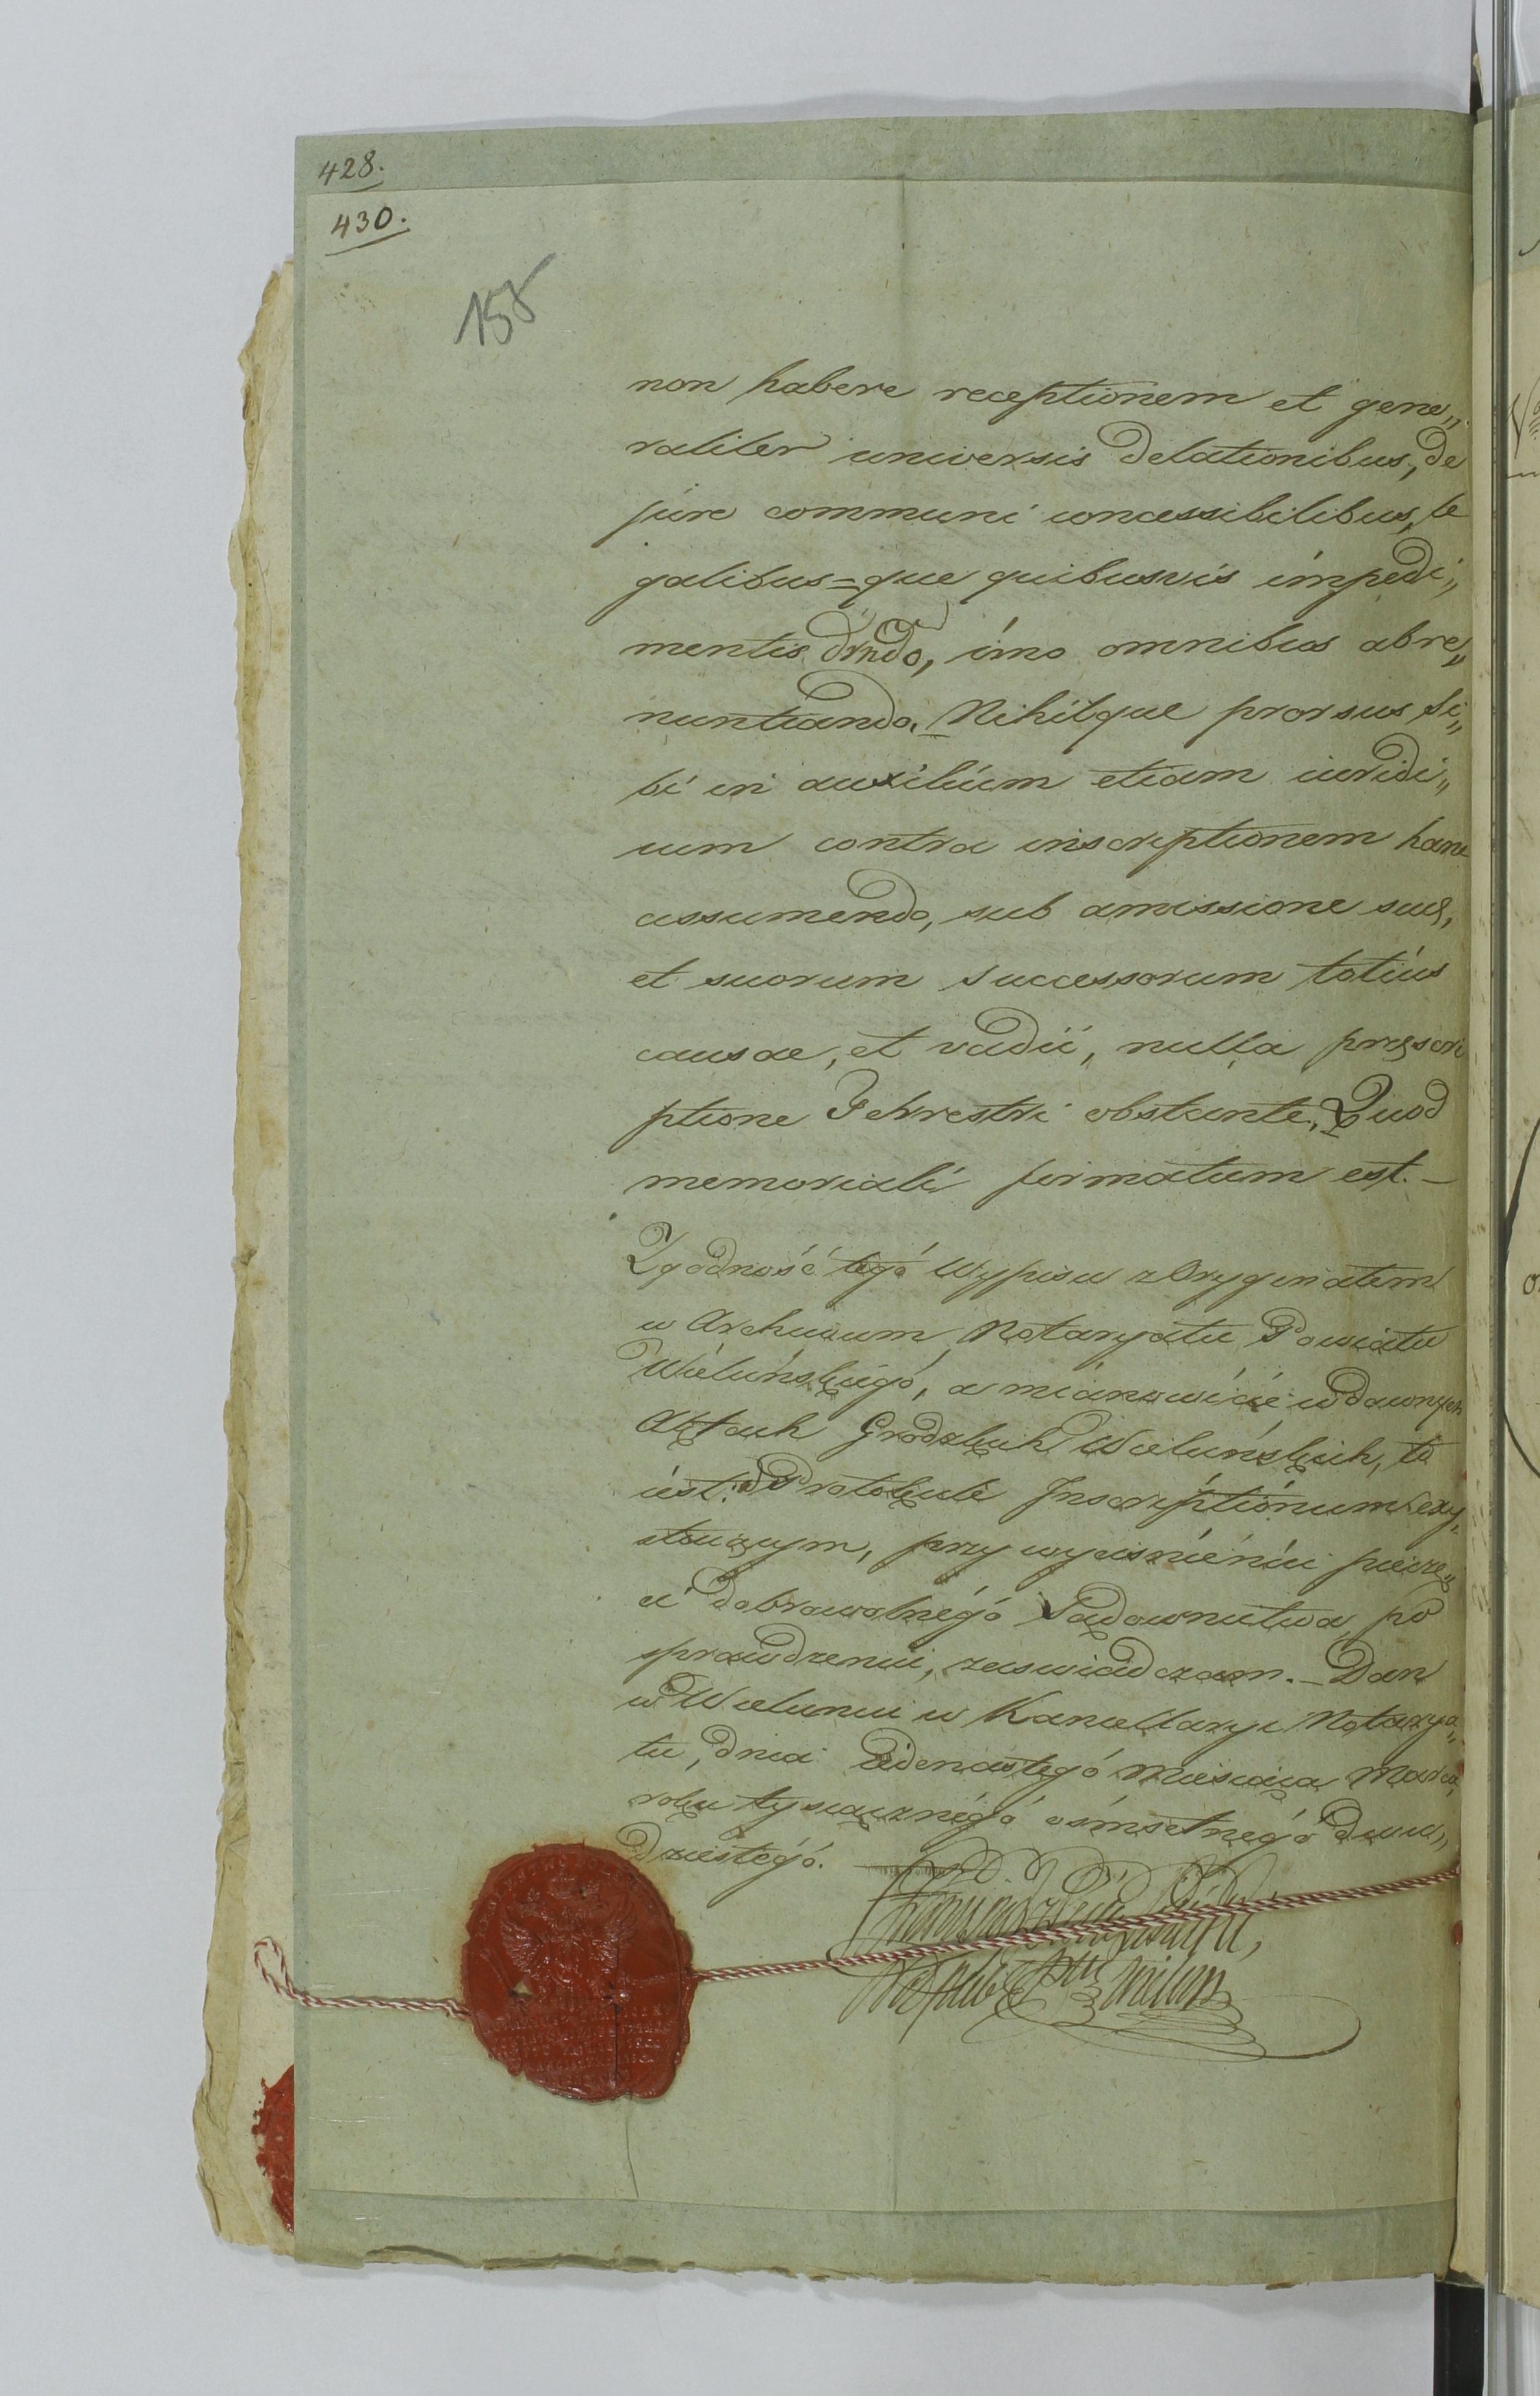 428.
430.
158
non habere receptionem et gene„
raliter universis delationibus, de
jure communi concessibilibus, le
galibus=que quibusvis impedi„
mentis dndo, imo omnibus abre„
nuntiando. Nihilque prorsus si„
bi in auxilium etiam iuridi„
cum contra inscriptionem hanc
assumendo, sub amissione suę,
et suorum successorum totius
causae, et vadii, nulla pręscri
ptione Terrestri obstante, Quod
memoriali firmatum est._
Zgodność tegó Wypisu z Oryginałem
w Archiwum Notaryatu Powiatu
Wieluńskiegó, a mianowicie w dawnych
Aktach Grodzkich Wieluńskich, to
iest: w Protokule Inscriptionum exy„
stuiącym, przy wyciśnieniu pieczę„
ci dobrowolnégó Sądownictwa, po
sprawdzeniu, zaswiadczam._ Dan
w Wieluniu w Kancellaryi Notarya„
tu, dnia iedenastegó Miesiąca Marca
roku tysiącznégó osmsetnegó dwu„
dziestégó.